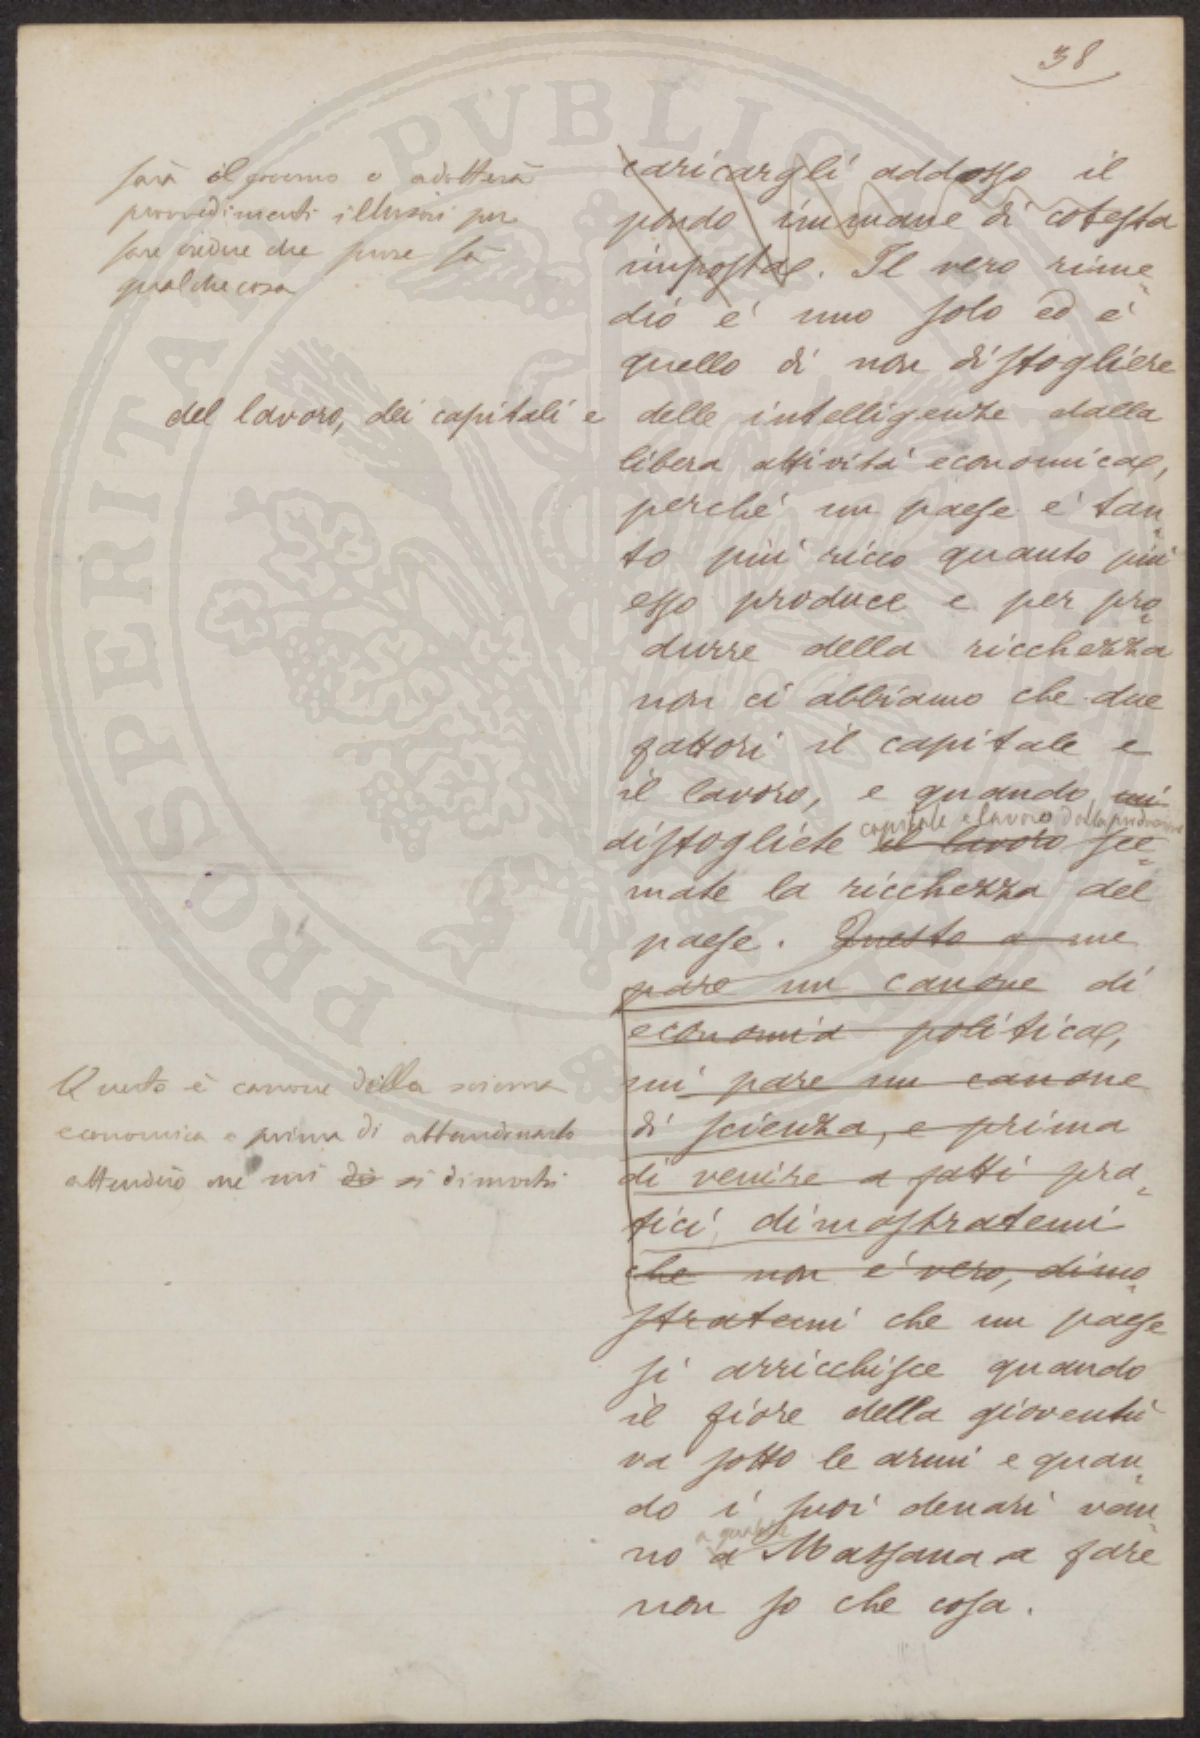 38
farà il governo e adotterà
provvedimenti illusori per
fare credere che pure fa
qualche cosa
caricargli addosso il
pondo immane di cotesta
imposta. Il vero rime-
dio è uno solo ed è
quello di non distogliere
del lavoro, dei capitali e delle intelligenze dalla
libera attività economica,
perché un paese è tan-
to più ricco quanto più
esso produce e per pro-
durre della ricchezza
non ci abbiamo che due
fattori il capitale e
il lavoro, e quando mi
capitale e lavoro dalla produzione
distogliete il lavoro sce-
mate la ricchezza del
paese. Questo a me
pare un canone di
economia politica,
mi pare un canone
di scienza, e prima
di venire a fatti pra-
tici, dimostratemi
che non è vero, dimo-
stratemi che un paese
si arricchisce quando
il fiore della gioventù
va sotto le armi e quan-
do i suoi denari van-
no a Massaua a fare
non so che cosa.
Questo è canone della scienza
economica e prima di abbandonarlo
attenderò che mi si dimostri
PVBLICAE
PROSPERITATI